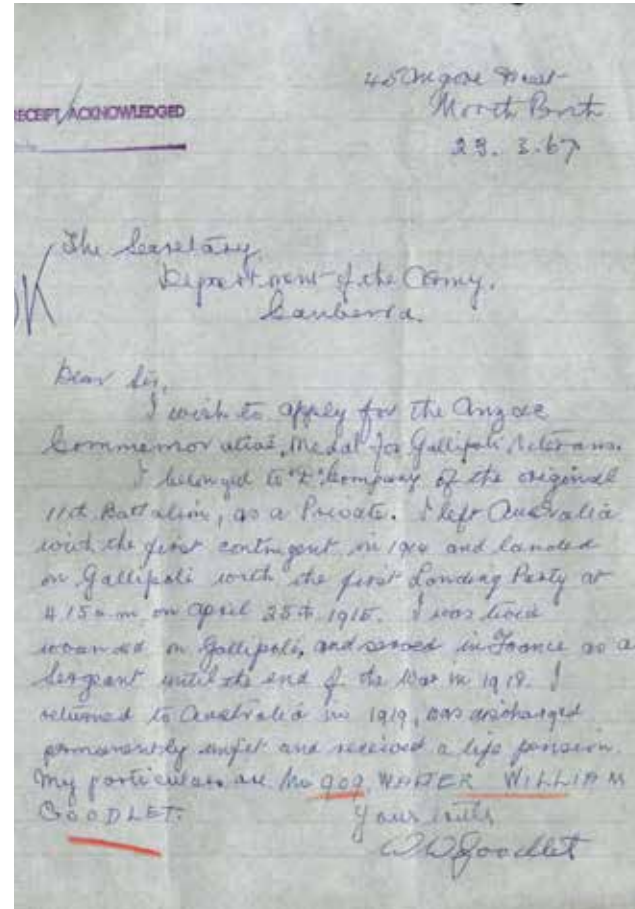 45 Angove Street
North Perth
23. 3. 67
RECEIPT/ACKNOWLEDGED
OK
The Secretary,
Department of the Army.
Canberra.
Dear Sir,
I wish to apply for the Anzac
Commemorative, Medal for Gallipoli Veterans.
I belonged to "D" Company of the original
11th Battalion, as a Private. I left Australia
with the first contingent in 1914 and landed
on Gallipoli with the first Landing Party at
4.15 a.m. on April 25th 1915. I was twice
wounded on Gallipoli, and served in France as a
Sergeant until the end of the War in 1918. I
returned to Australia in 1919, was discharged
permanently unfit and received a life pension.
My particulars are No 909 WALTER WILLIAM
GOODLET.
Yours
W W Goodlet